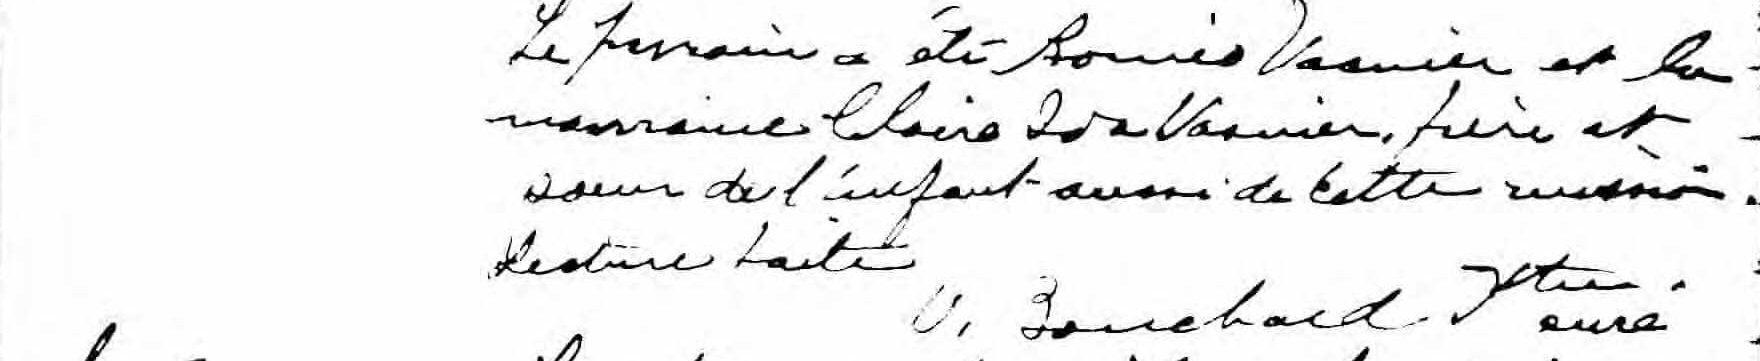 Le parrain a été Roméo Vasnier et la
marraine Claire Ida Vasnier, frère et
soeur de l'enfant aussi de cette mission.
Lecture faite
V. Bouchard Ptre.
curé